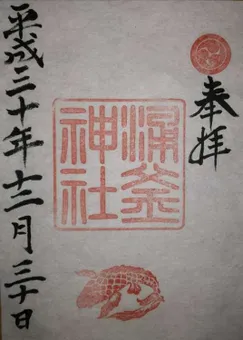 奉拝
涌釜
神社
平成三十年十二月三十日